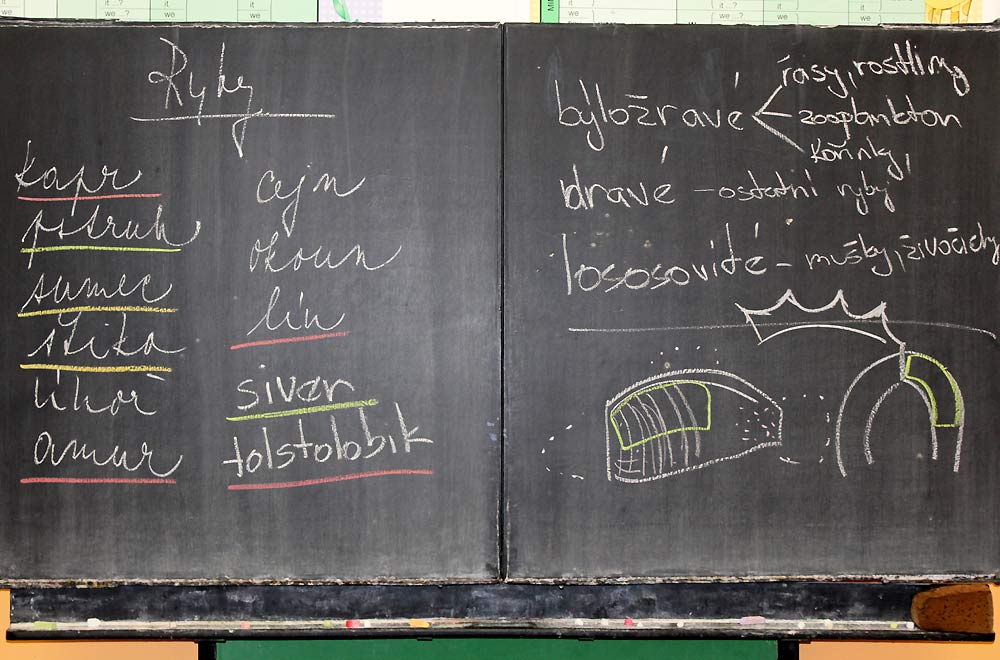 it it (it...?) it it
we... we...? we... we...?
MIN
Ryby
kapr
pstruh
sumec
štika
úhoř
amur
cejn
okoun
lín
siven
tolstolobik
býložravé
řasy, rostliny
zooplankton
kořínky,
dravé – ostatní ryby
lososovité – mušky, živočichy